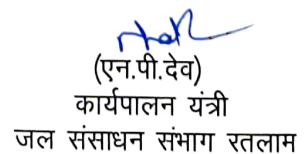 (एन.पी.देव)
कार्यपालन यंत्री
जल संसाधन संभाग रतलाम